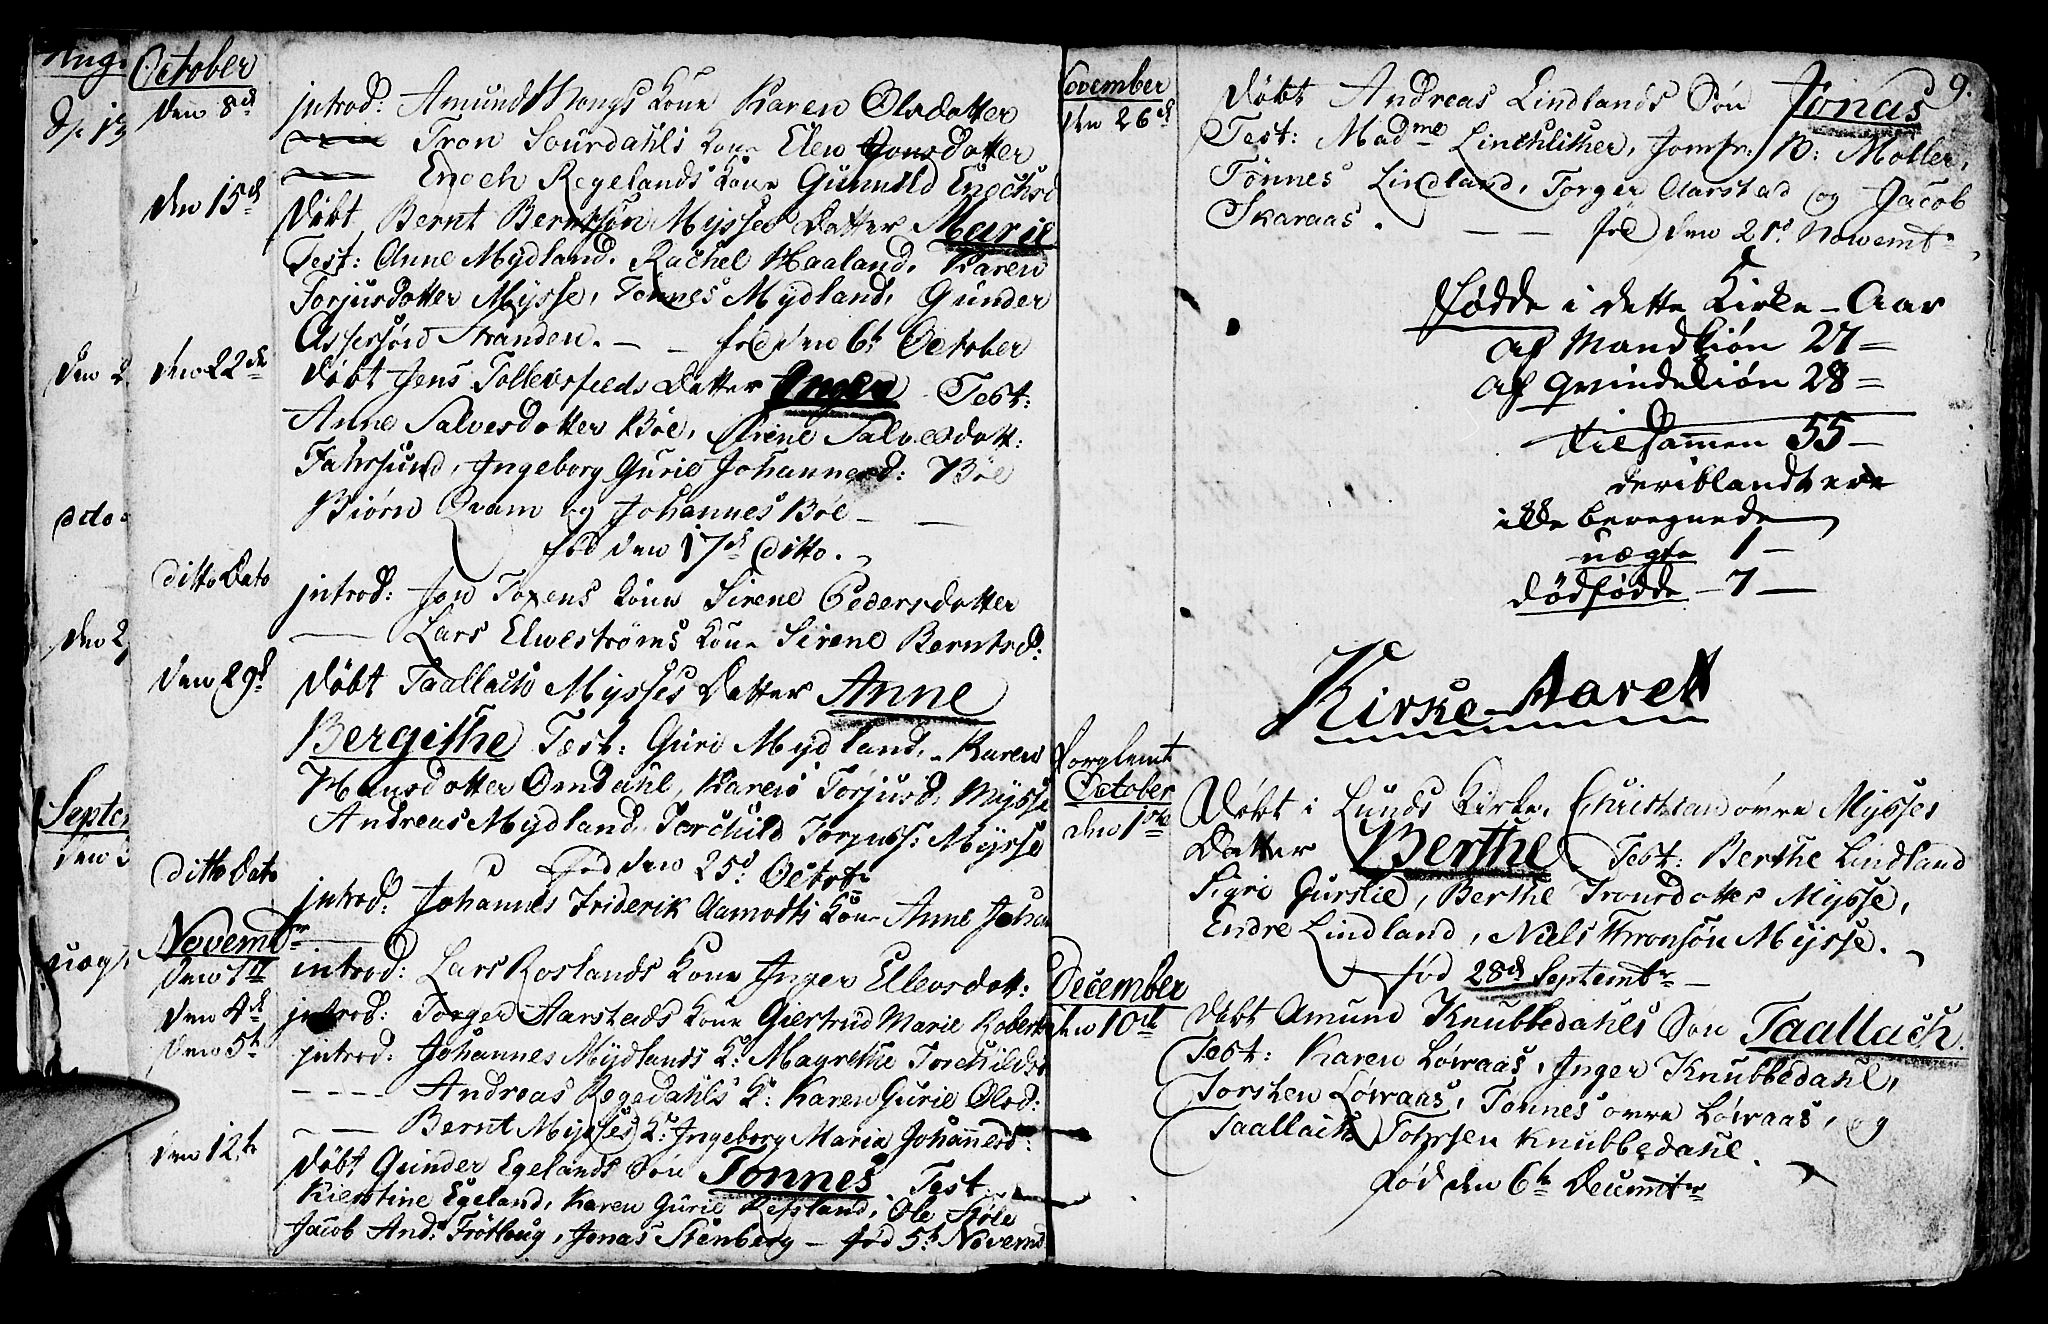 October
den 8de introd: Amund Hougs Kone Karen Olsdatter
Tron Sourdahls Kone Elen Jonsdatter
Enoch Regelands Kone Gunnild Enochsd
den 15de Døbt Bernt Berntsøn Mysses Datter Marie
Test: Anne Mydland, Rachel Haaland, Karen
Torjusdotter Mysse, Tønnes Mydland, Gunder
Assersøn Stranden. — — fød den 6te October
den 22de Døbt Jens Tollevsfields Datter Inger Test:
Anne Salvesdotter Bøe, Sirene Salvesdatt:
Fahrsund, Ingeborg Gurie Johannesd: Bøe
Biørn Qvam og Johannes Bøe — —
fød den 17de ditto.
ditto Dato introd: Jon Toxens Kone Sirene Pedersdatter
— Lars Elvestrøms Kone Sirene Berntsd:
den 29d Døbt Taallachs Mysses Datter Anne
Bergithe Test: Guri Mydland, Karen
Hansdotter Omdahl, Karen Torjusd: Mysse
Andreas Mydland, Torchild Torjuss: Mysse
Fød den 25d Octobr
ditto Dato introd: Johannes Friderik Aamodts Kone Anne Joha
Novembr
den 1te introd: Lars Roslands Kone Inger Ellevsdatt:
den 4de introd: Torger Aarstads Kone Giertrud Marie Roberts
den 5te introd: Johannes Mydlands Ko Magrethe Torchildsd
---- Andreas Regedahls K: Karen Gurie Olsd:
-- -- Bernt Mysses K: Ingeborg Maria Johannesd:
den 12te Døbt Gunder Egelands Søn Tønnes Test
Kierstine Egeland, Karen Gurie Refsland, Ole Støle
Jacob And: Frøtloug, Jonas Stenberg — fød 5te Novemb
9.
November
den 26de Døbt Andreas Lindlands Søn Jonas
Test: Madme Lindthlither, Jomfr: B: Møller,
Tønnes Lindland, Torger Aarstad og Jacob
Skaraas. — — fød den 21d Novembr
Fødde i dette Kirke-Aar
af Mandkiøn 27 =
af Qvindekiøn 28 =
tilsamen 55 —
deriblandt ere
ikke beregnede
uægte 1 —
dødfødde — 7 —
Kirke-Aaret
Forglemt
October
den 1ste Døbt i Lunds Kirke, Christian øvre Mysses
Datter Berthe Test: Berthe Lindland
Sigri Gurslie, Berthe Tronsdotter Mysse,
Endre Lindland, Niels Thronsøn Mysse.
fød 28de Septembr —
December
den 10de Døbt Amund Knubbedahls Søn Taallach.
Test: Karen Løvaas, Inger Knubbedahl,
Torsten Løvaas, Tønnes øvre Løvaas, og
Taallach Tohrsen Knubbedahl.
Fød den 6te Decembr